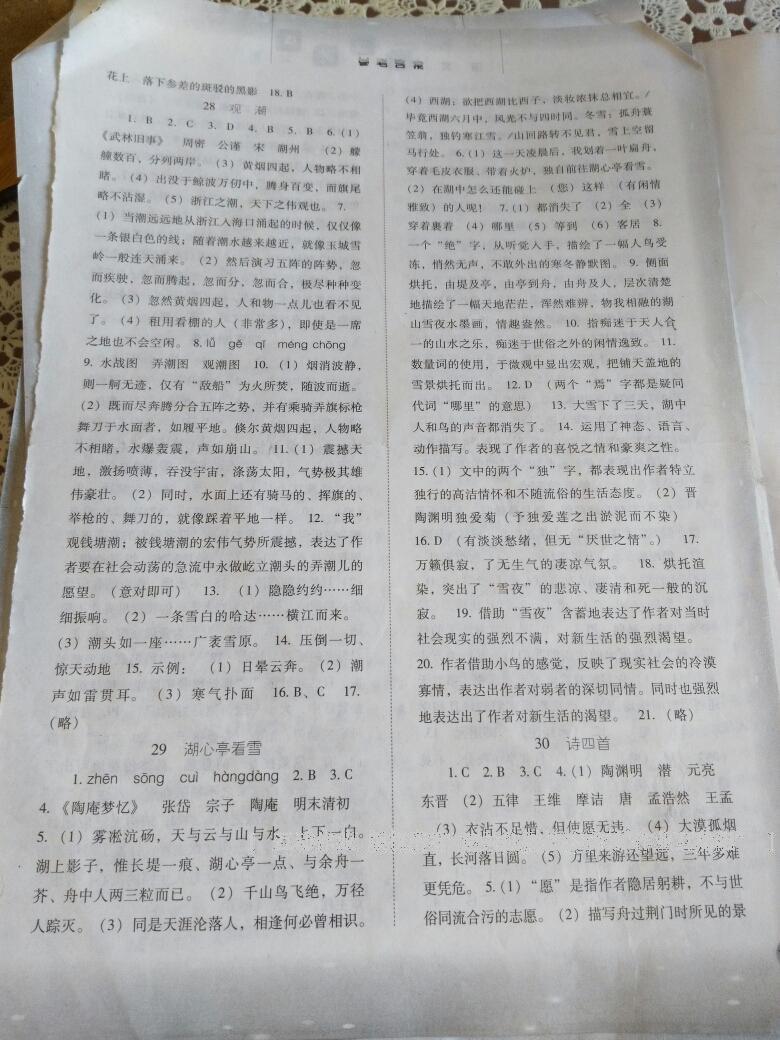 参考答案
花上 落下参差的斑驳的黑影 18. B
28 观 潮
1. B 2. C 3. D 4. B 5. B 6. (1)
《武林旧事》 周密 公谨 宋 湖州 (2) 艨
艟数百，分列两岸。 (3) 黄烟四起，人物略不相
睹。 (4) 出没于鲸波万仞中，腾身百变，而旗尾
略不沾湿。 (5) 浙江之潮，天下之伟观也。 7.
(1) 当潮远远地从浙江入海口涌起的时候，仅仅像
一条银白色的线；随着潮水越来越近，就像玉城雪
岭一般连天涌来。 (2) 然后演习五阵的阵势，忽
而疾驶，忽而腾起，忽而分，忽而合，极尽种种变
化。 (3) 忽然黄烟四起，人和物一点儿也看不见
了。 (4) 租用看棚的人（非常多），即使是一席
之地也不会空闲。 8. lǚ gě qī méng chōng
9. 水战图 弄潮图 观潮图 10. (1) 烟消波静，
则一舸无迹，仅有“敌船”为火所焚，随波而逝。
(2) 既而尽奔腾分合五阵之势，并有乘骑弄旗标枪
舞刀于水面者，如履平地。倏尔黄烟四起，人物略
不相睹，水爆轰震，声如崩山。 11. (1) 震撼天
地，激扬喷薄，吞没宇宙，涤荡太阳，气势极其雄
伟豪壮。 (2) 同时，水面上还有骑马的、挥旗的、
举枪的、舞刀的，就像踩着平地一样。 12. “我”
观钱塘潮；被钱塘潮的宏伟气势所震撼，表达了作
者要在社会动荡的急流中永做屹立潮头的弄潮儿的
愿望。（意对即可） 13. (1) 隐隐约约……细
细振响。 (2) 一条雪白的哈达……横江而来。
(3) 潮头如一座……广袤雪原。 14. 压倒一切、
惊天动地 15. 示例： (1) 日晕云奔。 (2) 潮
声如雷贯耳。 (3) 寒气扑面 16. B、C 17.
（略）
29 湖心亭看雪
1. zhēn sōng cuì hàngdàng 2. B 3. C
4. 《陶庵梦忆》 张岱 宗子 陶庵 明末清初
5. (1) 雾凇沆砀，天与云与山与水，上下一白。
湖上影子，惟长堤一痕、湖心亭一点、与余舟一
芥、舟中人两三粒而已。 (2) 千山鸟飞绝，万径
人踪灭。 (3) 同是天涯沦落人，相逢何必曾相识。
(4) 西湖；欲把西湖比西子，淡妆浓抹总相宜。/
毕竟西湖六月中，风光不与四时同。冬雪；孤舟蓑
笠翁，独钓寒江雪。/山回路转不见君，雪上空留
马行处。 6. (1) 这一天凌晨后，我划着一叶扁舟，
穿着毛皮衣服、带着火炉，独自前往湖心亭看雪。
(2) 在湖中怎么还能碰上（您）这样（有闲情
雅致）的人呢！ 7. (1) 都消失了 (2) 全 (3)
穿着裹着 (4) 哪里 (5) 等到 (6) 客居 8.
一个“绝”字，从听觉入手，描绘了一幅人鸟受
冻，悄然无声，不敢外出的寒冬静默图。 9. 侧面
烘托，由堤及亭，由亭到舟，由舟及人，层次清楚
地描绘了一幅天地茫茫，浑然难辨，物我相融的湖
山雪夜水墨画，情趣盎然。 10. 指痴迷于天人合
一的山水之乐，痴迷于世俗之外的闲情逸致。 11.
数量词的使用，于微观中显出宏观，把铺天盖地的
雪景烘托而出。 12. D （两个“焉”字都是疑问
代词“哪里”的意思） 13. 大雪下了三天，湖中
人和鸟的声音都消失了。 14. 运用了神态、语言、
动作描写。表现了作者的喜悦之情和豪爽之性。
15. (1) 文中的两个“独”字，都表现出作者特立
独行的高洁情怀和不随流俗的生活态度。 (2) 晋
陶渊明独爱菊（予独爱莲之出淤泥而不染）
16. D （有淡淡愁绪，但无“厌世之情”。） 17.
万籁俱寂，了无生气的凄凉气氛。 18. 烘托渲
染，突出了“雪夜”的悲凉、凄清和死一般的沉
寂。 19. 借助“雪夜”含蓄地表达了作者对当时
社会现实的强烈不满，对新生活的强烈渴望。
20. 作者借助小鸟的感觉，反映了现实社会的冷漠
寡情，表达出作者对弱者的深切同情。同时也强烈
地表达出了作者对新生活的渴望。 21. （略）
30 诗四首
1. C 2. B 3. C 4. (1) 陶渊明 潜 元亮
东晋 (2) 五律 王维 摩诘 唐 孟浩然 王孟
(3) 衣沾不足惜、但使愿无违。 (4) 大漠孤烟
直，长河落日圆。 (5) 万里来游还望远，三年多难
更凭危。 5. (1) “愿”是指作者隐居躬耕，不与世
俗同流合污的志愿。 (2) 描写舟过荆门时所见的景